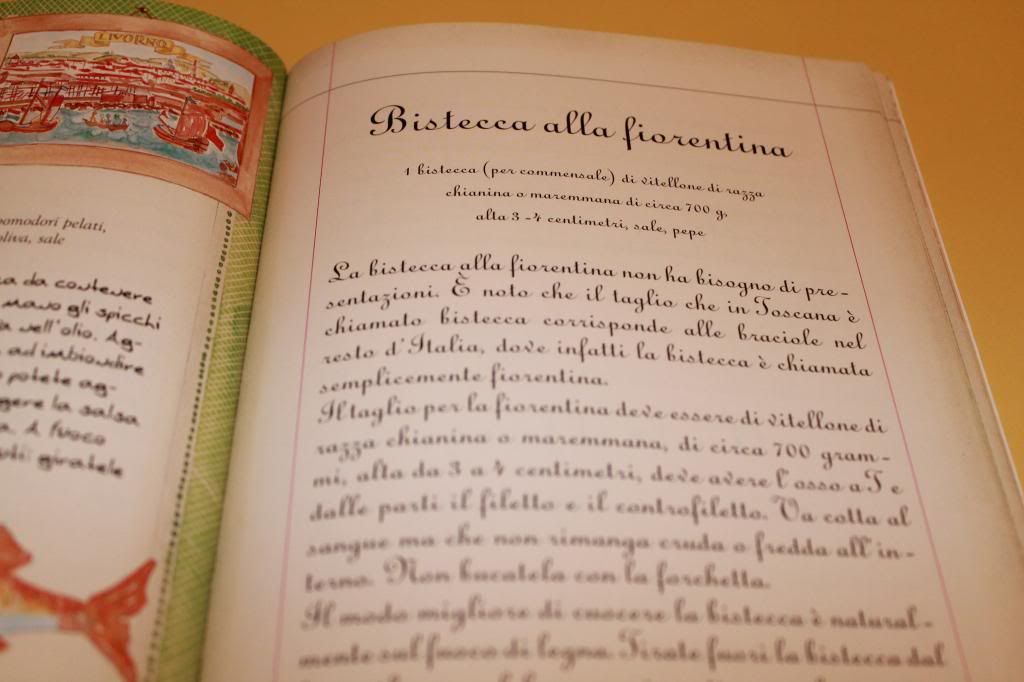 LIVORNO
pomodori pelati,
oliva, sale
a da contenere
mano gli spicchi
a nell'olio. Ag-
ad imbiondire
potete ag-
gere la salsa
a. A fuoco
uti: giratele
Bistecca alla fiorentina
1 bistecca (per commensale) di vitellone di razza
chianina o maremmana di circa 700 g,
alta 3-4 centimetri, sale, pepe
La bistecca alla fiorentina non ha bisogno di pre-
sentazioni. È noto che il taglio che in Toscana è
chiamato bistecca corrisponde alle braciole nel
resto d'Italia, dove infatti la bistecca è chiamata
semplicemente fiorentina.
Il taglio per la fiorentina deve essere di vitellone di
razza chianina o maremmana, di circa 700 gram-
mi, alta da 3 a 4 centimetri, deve avere l'osso a T e
dalle parti il filetto e il controfiletto. Va cotta al
sangue ma che non rimanga cruda o fredda all'in-
terno. Non bucatela con la forchetta.
Il modo migliore di cuocere la bistecca è natural-
mente sul fuoco di legna. Tirate fuori la bistecca dal